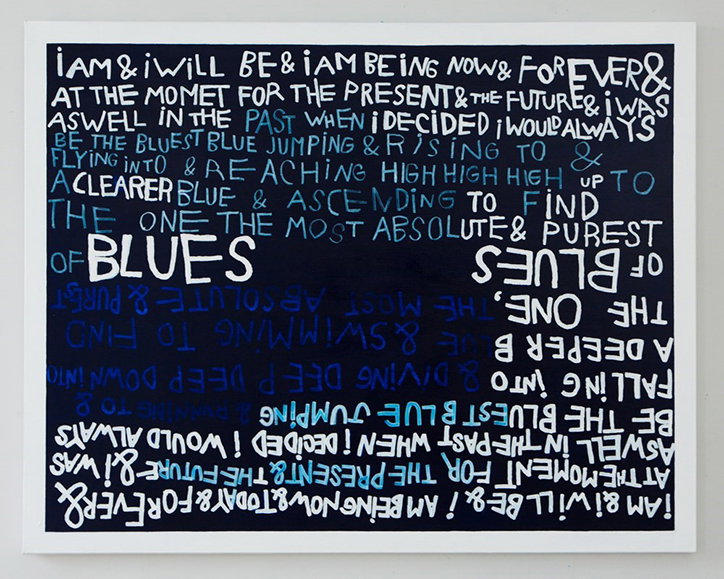 iAM & iWiLL BE & iAM BEiNG NOW & FOREVER &
AT THE MOMET FOR THE PRESENT & THE FUTURE & i WAS
ASWELL IN THE PAST WHEN i DECiDED i WOULD ALWAYS
BE THE BLUEST BLUE JUMPiNG & RiSiNG TO &
FLYiNG iNTO & REACHiNG HIGH HIGH HIGH UP TO
A CLEARER BLUE & ASCENDiNG TO FIND
THE ONE THE MOST ABSOLUTE & PUREST
OF BLUES
i AM & i WiLL BE & i AM BEiNG NOW & TODAY & FOREVER &
AT THE MOMENT FOR THE PRESENT & THE FUTURE & i WAS
ASWELL iN THE PAST WHEN i DECiDED i WOULD ALWAYS
BE THE BLUEST BLUE JUMPiNG & RUNNiNG TO &
FALLiNG iNTO & DiViNG DEEP DEEP DOWN iNTO
A DEEPER B & SWiMMiNG TO FIND
THE ONE, THE MOST ABSOLUTE & PUREST
OF BLUES